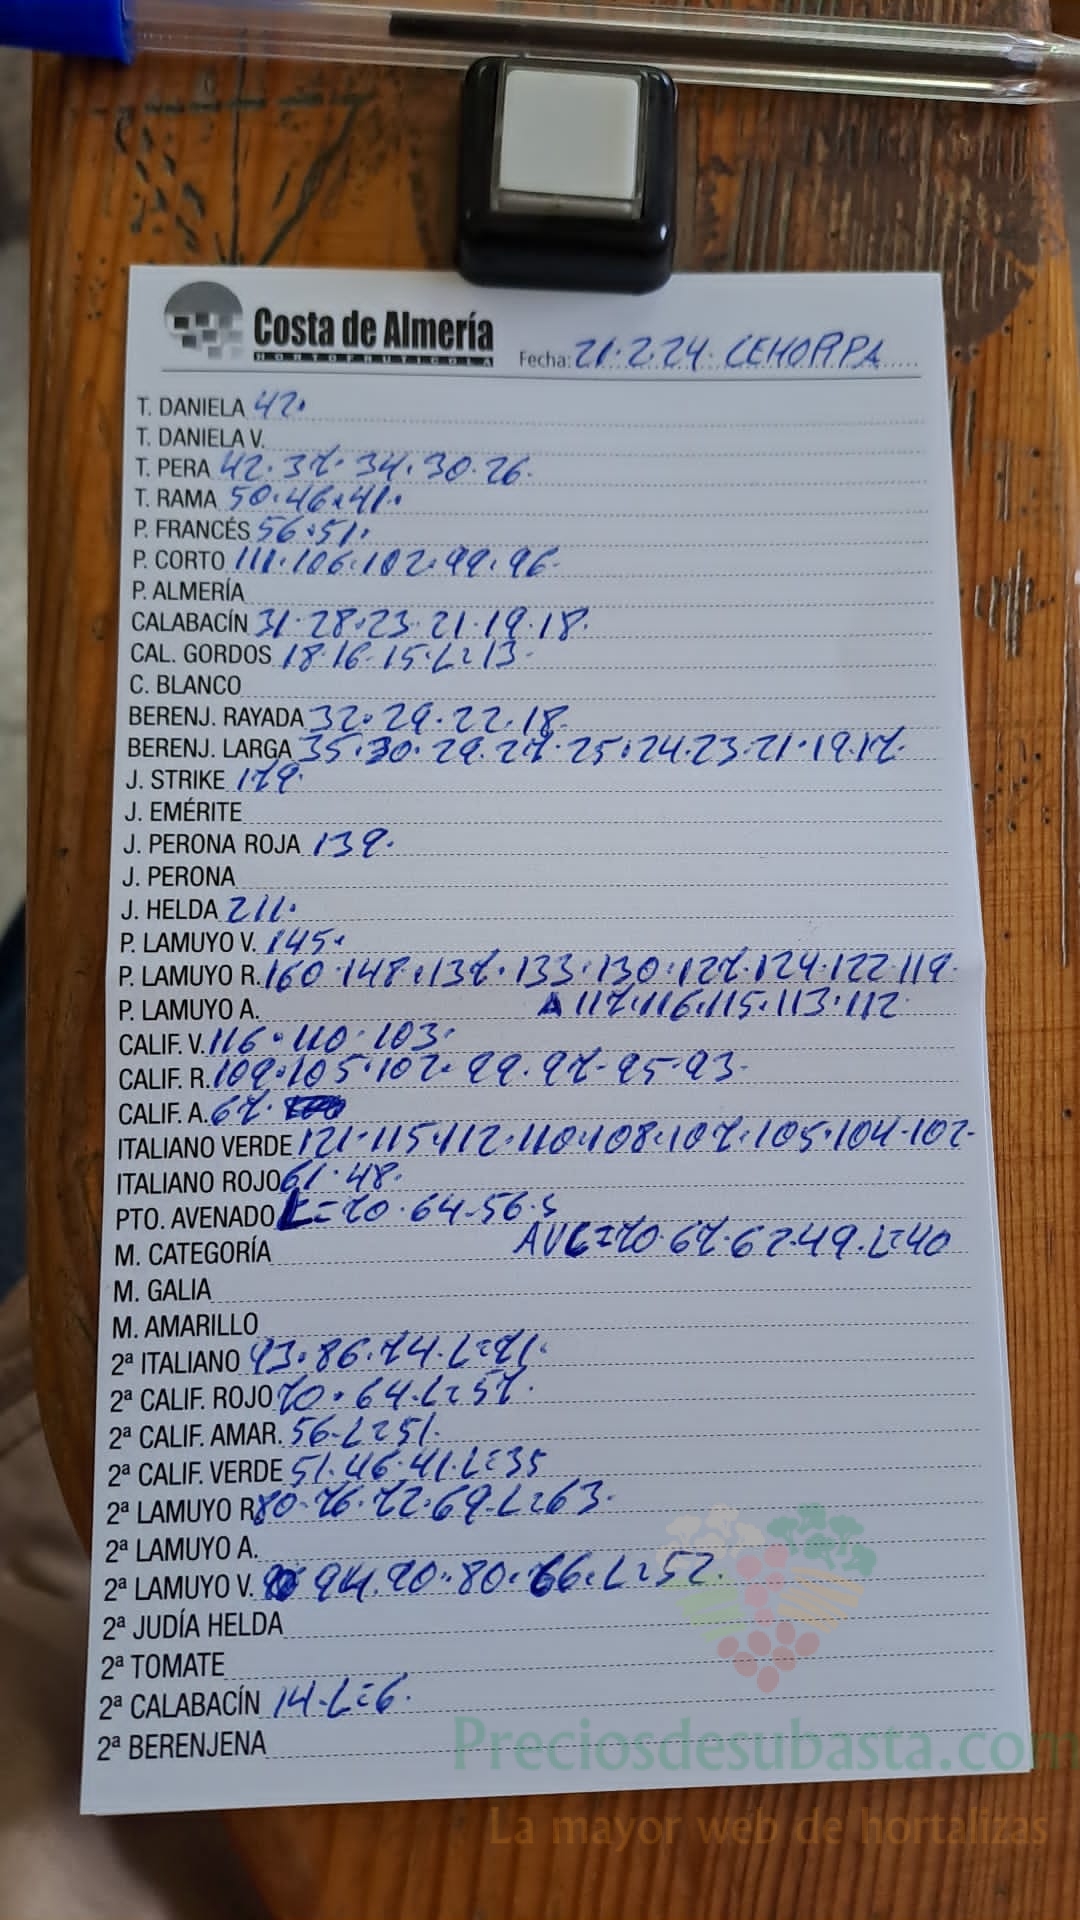 Costa de Almería
HORTOFRUTICOLA
Fecha: 21.2.24. CEHORPA
T. DANIELA 42.
T. DANIELA V.
T. PERA 42.37.34.30.26.
T. RAMA 50.46.41.
P. FRANCÉS 56.51.
P. CORTO 111.106.102.99.96.
P. ALMERÍA
CALABACÍN 31.28.23.21.19.18.
CAL. GORDOS 18.16.15.L=13.
C. BLANCO
BERENJ. RAYADA 32.29.22.18.
BERENJ. LARGA 35.30.29.27.25.24.23.21.19.17.
J. STRIKE 179.
J. EMÉRITE
J. PERONA ROJA 139.
J. PERONA
J. HELDA 211.
P. LAMUYO V. 145.
P. LAMUYO R. 160.148.137.133.130.127.124.122.119.
P. LAMUYO A. 117.116.115.113.112
CALIF. V. 116.110.103.
CALIF. R. 109.105.102.99.97.95.93.
CALIF. A. 67.
ITALIANO VERDE 121.115.112.110.108.107.105.104.102.
ITALIANO ROJO 61.48.
PTO. AVENADO L=70.64.56.5
AVC=70.67.62.49.L=40
M. CATEGORÍA
M. GALIA
M. AMARILLO
2ª ITALIANO 93.86.74.L=71.
2ª CALIF. ROJO 70.64.L=57.
2ª CALIF. AMAR. 56.L=51.
2ª CALIF. VERDE 51.46.41.L=35
2ª LAMUYO R. 80.76.72.69.L=63.
2ª LAMUYO A.
2ª LAMUYO V. 94.90.80.66.L=52.
2ª JUDÍA HELDA
2ª TOMATE
2ª CALABACÍN 14.L=6.
2ª BERENJENA
Preciosdesubasta.com
La mayor web de hortalizas